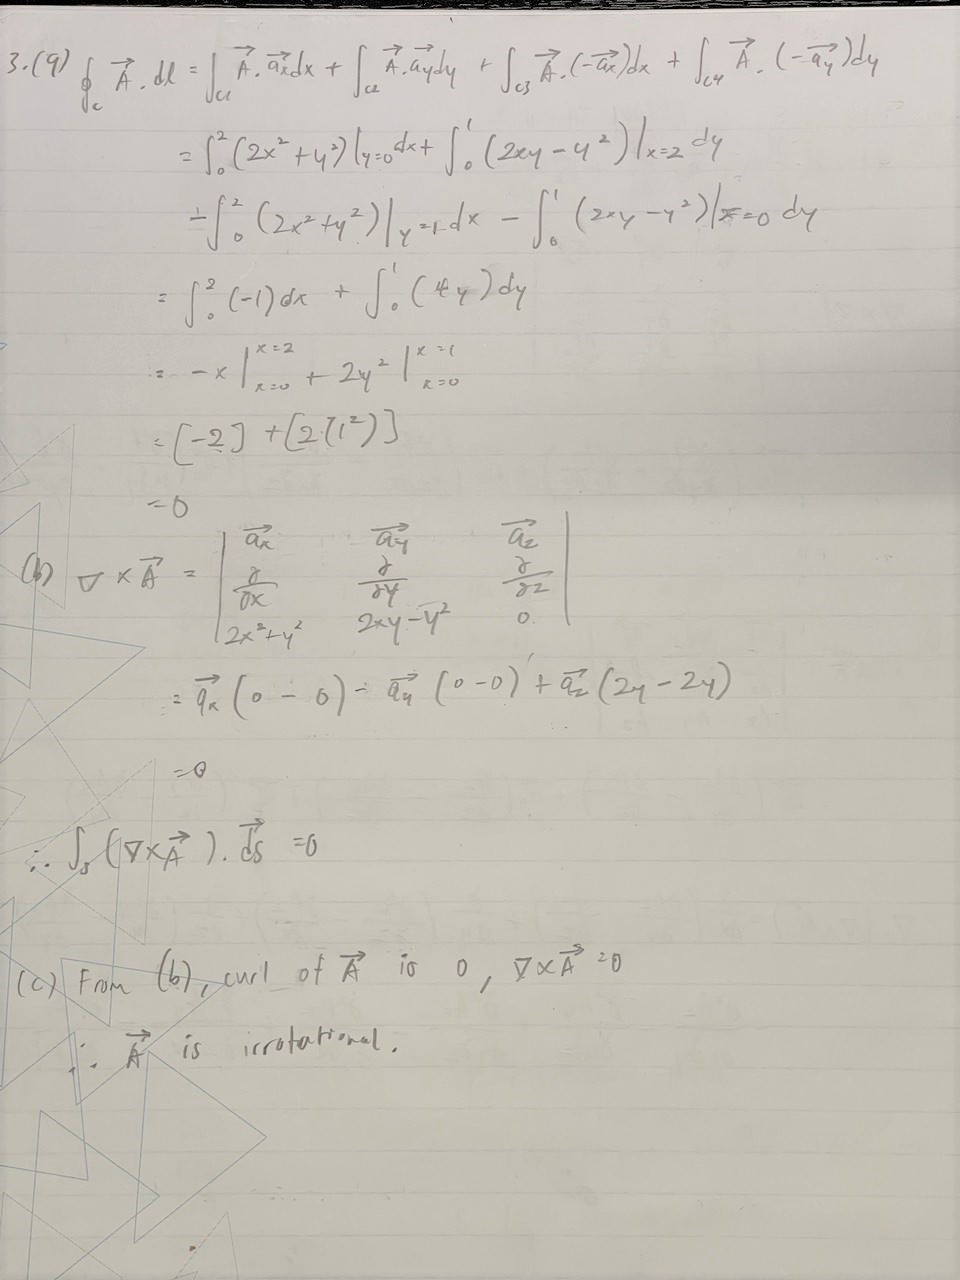 3.(a) ∮_c A⃗ . dl = ∫_c1 A⃗ . a⃗x dx + ∫_c2 A⃗ . a⃗y dy + ∫_c3 A⃗ . (-a⃗x) dx + ∫_c4 A⃗ . (-a⃗y) dy
= ∫₀² (2x² + y²)|y=0 dx + ∫₀¹ (2xy - y²)|x=2 dy
- ∫₀² (2x² + y²)|y=1 dx - ∫₀¹ (2xy - y²)|x=0 dy
= ∫₀² (-1) dx + ∫₀¹ (4y) dy
= -x |x=0 x=2 + 2y² |x=0 x=1
= [-2] + [2(1²)]
= 0
(b) ∇ × A⃗ = | a⃗x a⃗y a⃗z |
∂/∂x ∂/∂y ∂/∂z
2x²+y² 2xy-y² 0
= a⃗x (0 - 0) - a⃗y (0-0) + a⃗z (2y - 2y)
= 0
∴ ∫_s (∇×A⃗) . d⃗s = 0
(c) From (b), curl of A⃗ is 0, ∇×A⃗ = 0
∴ A⃗ is irrotational.